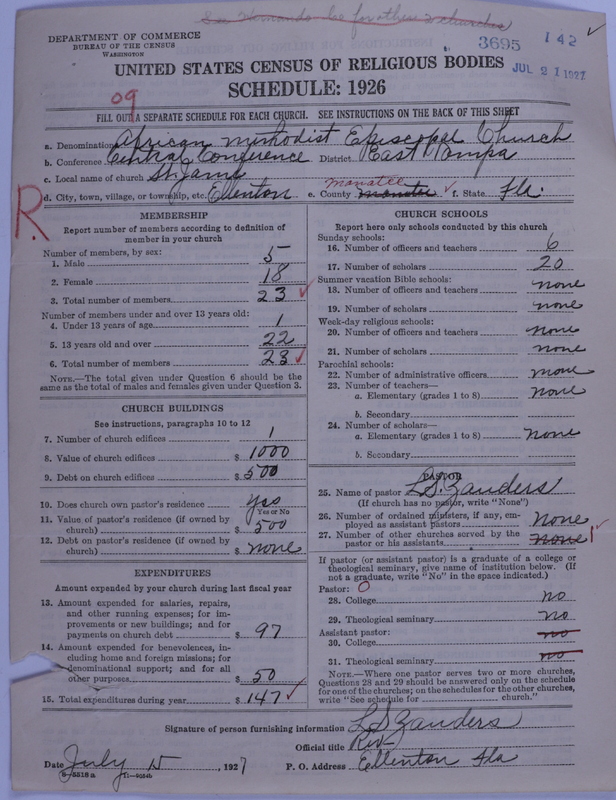 for other 2 churches
DEPARTMENT OF COMMERCE
BUREAU OF THE CENSUS
WASHINGTON
3695 142
JUL 21 1927
UNITED STATES CENSUS OF RELIGIOUS BODIES
SCHEDULE: 1926
09
FILL OUT A SEPARATE SCHEDULE FOR EACH CHURCH. SEE INSTRUCTIONS ON THE BACK OF THIS SHEET
a. Denomination African Methodist Episcopal Church
b. Conference Central Conference District East Tampa
c. Local name of church St. James
d. City, town, village, or township, etc. Ellenton e. County Manatee f. State Fla.
R.
MEMBERSHIP
Report number of members according to definition of
member in your church
Number of members, by sex:
1. Male 5
2. Female 18
3. Total number of members 23
Number of members under and over 13 years old:
4. Under 13 years of age 1
5. 13 years old and over 22
6. Total number of members 23
NOTE.—The total given under Question 6 should be the
same as the total of males and females given under Question 3.
CHURCH BUILDINGS
See instructions, paragraphs 10 to 12
7. Number of church edifices 1
8. Value of church edifices $ 1000
9. Debt on church edifices $ 500
10. Does church own pastor's residence yes
Yes or No
11. Value of pastor's residence (if owned by
church) $ 500
12. Debt on pastor's residence (if owned by
church) $ none
EXPENDITURES
Amount expended by your church during last fiscal year
13. Amount expended for salaries, repairs,
and other running expenses; for im-
provements or new buildings; and for
payments on church debt $ 97
14. Amount expended for benevolences, in-
cluding home and foreign missions; for
denominational support; and for all
other purposes $ 50
15. Total expenditures during year $ 147
CHURCH SCHOOLS
Report here only schools conducted by this church
Sunday schools:
16. Number of officers and teachers 6
17. Number of scholars 20
Summer vacation Bible schools:
18. Number of officers and teachers none
19. Number of scholars none
Week-day religious schools:
20. Number of officers and teachers none
21. Number of scholars none
Parochial schools:
22. Number of administrative officers none
23. Number of teachers—
a. Elementary (grades 1 to 8) none
b. Secondary
24. Number of scholars—
a. Elementary (grades 1 to 8) none
b. Secondary
PASTOR
25. Name of pastor L.S. Zanders
(If church has no pastor, write "None")
26. Number of ordained ministers, if any, em-
ployed as assistant pastors None
27. Number of other churches served by the
pastor or his assistants none 1
If pastor (or assistant pastor) is a graduate of a college or
theological seminary, give name of institution below. (If
not a graduate, write "No" in the space indicated.)
Pastor: O
28. College no
29. Theological seminary no
Assistant pastor:
30. College no
31. Theological seminary no
NOTE.—Where one pastor serves two or more churches,
Questions 28 and 29 should be answered only on the schedule
for one of the churches; on the schedules for the other churches,
write "See schedule for church."
Signature of person furnishing information L S Zanders
Official title Rev
Date July 15, 1927 P. O. Address Ellenton Fla
6-5518 a 11-9184b